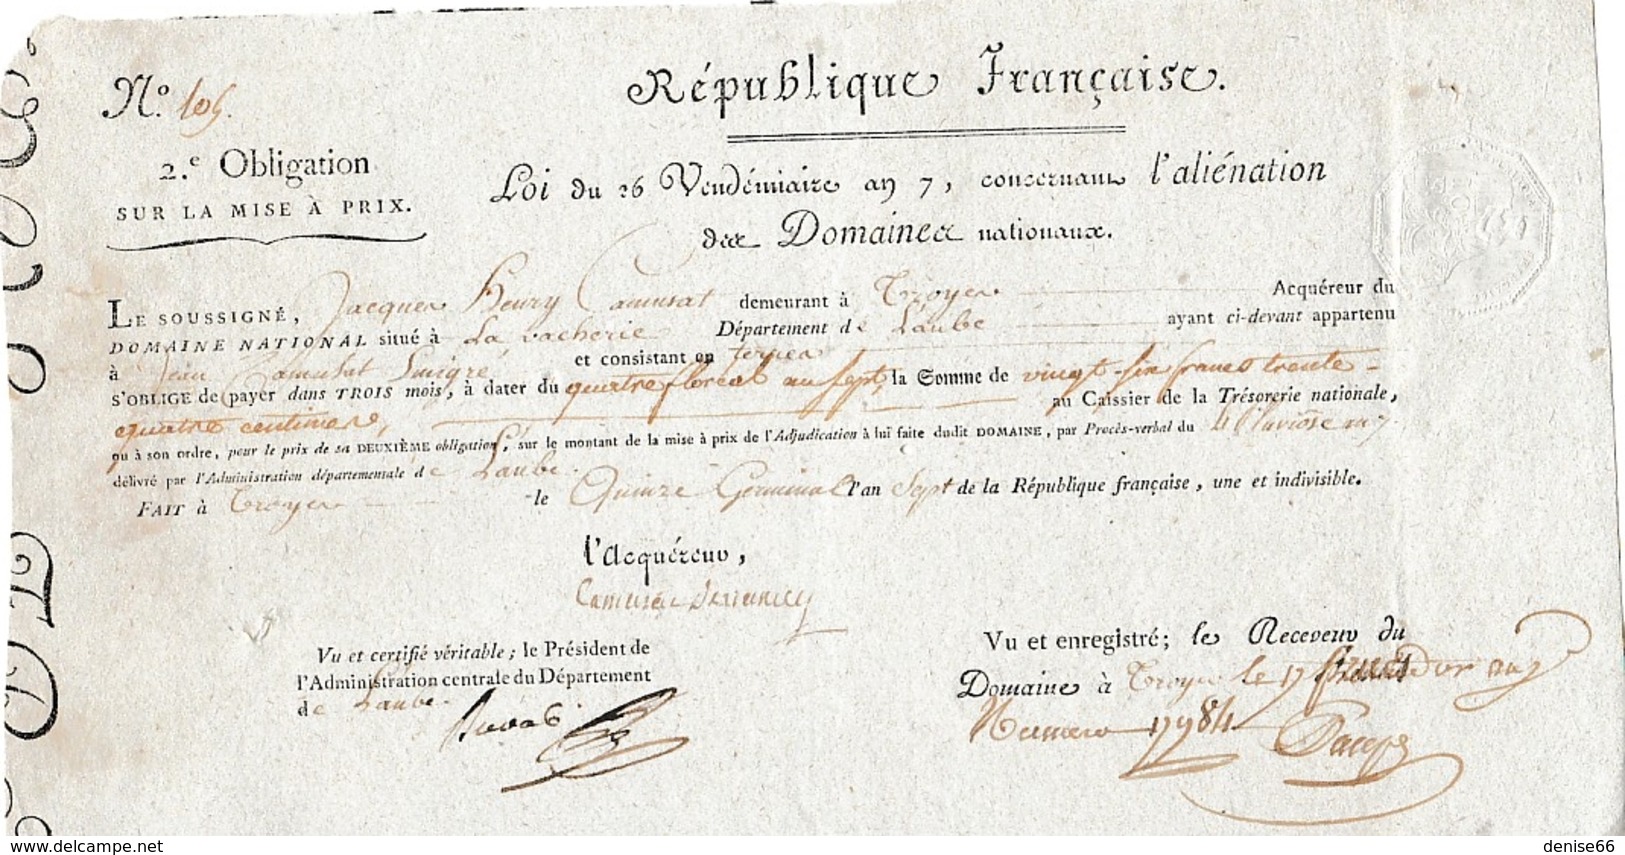 N.o 105.
2.e Obligation
SUR LA MISE À PRIX.
République Française.
Loi du 26 Vendémiaire an 7, concernant l'aliénation
des Domaines nationaux.
LE SOUSSIGNÉ, Jacques Henry Camusat demeurant à Troyes Acquéreur du
DOMAINE NATIONAL situé à La vacherie Département de Laube ayant ci-devant appartenu
à Jean Camusat Emigré et consistant en terres
S'OBLIGE de payer dans TROIS mois, à dater du quatre floréal an sept, la Somme de vingt-six francs trente-
quatre centimes, au Caissier de la Trésorerie nationale,
ou à son ordre, pour le prix de sa DEUXIÈME obligation, sur le montant de la mise à prix de l'Adjudication à lui faite dudit DOMAINE, par Procès-verbal du 4 Pluviôse an 7.
délivré par l'Administration départementale de Laube.
FAIT à Troyes le Quinze Germinal l'an Sept de la République française, une et indivisible.
l'Acquéreur,
Vu et certifié véritable; le Président de
l'Administration centrale du Département
de Laube.
Vu et enregistré; le Receveur du
Domaine à Troyes le 17 an 7
Numero 17984
delcampe.net
denise66